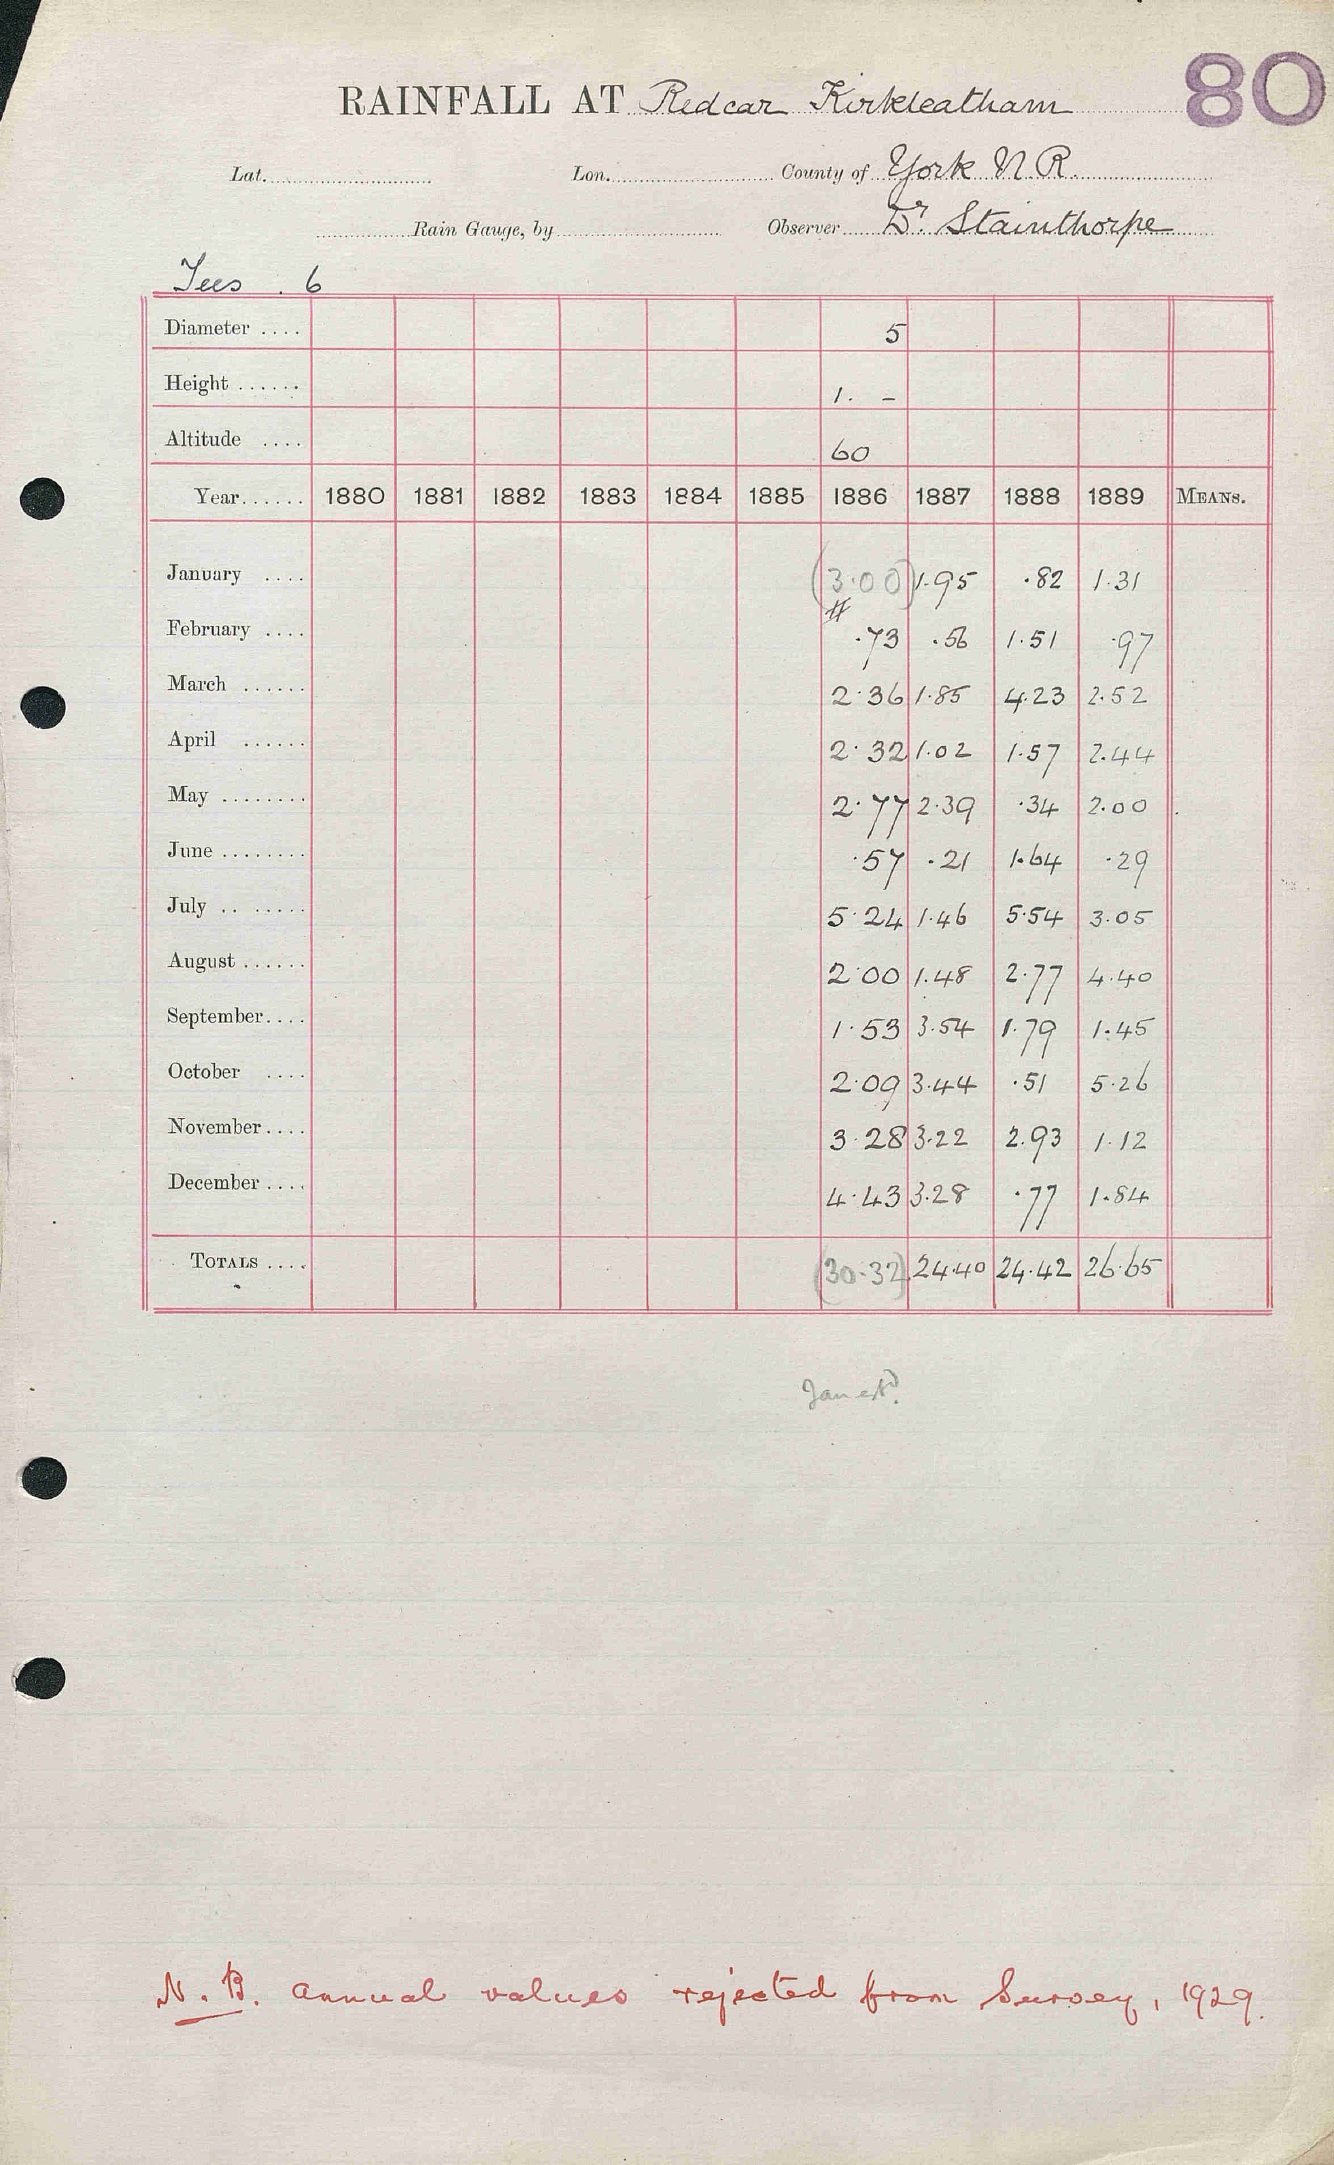 80
RAINFALL AT Redcar Kirkleatham
Lat. Lon. County of York N.R.
Rain Gauge, by Observer Dr. Stainthorpe
Tees . 6
Diameter .... 5
Height ...... 1. –
Altitude .... 60
Year...... 1880 1881 1882 1883 1884 1885 1886 1887 1888 1889 MEANS.
January .... (3.00) 1.95 .82 1.31
February .... # .73 .56 1.51 .97
March ...... 2.36 1.85 4.23 2.52
April ...... 2.32 1.02 1.57 2.44
May ........ 2.77 2.39 .34 2.00
June ........ .57 .21 1.64 .29
July .. ..... 5.24 1.46 5.54 3.05
August ...... 2.00 1.48 2.77 4.40
September.... 1.53 3.54 1.79 1.45
October .... 2.09 3.44 .51 5.26
November.... 3.28 3.22 2.93 1.12
December .... 4.43 3.28 .77 1.84
TOTALS .... (30.32) 24.40 24.42 26.65
Jan estd.
N.B. annual values rejected from Survey, 1929.